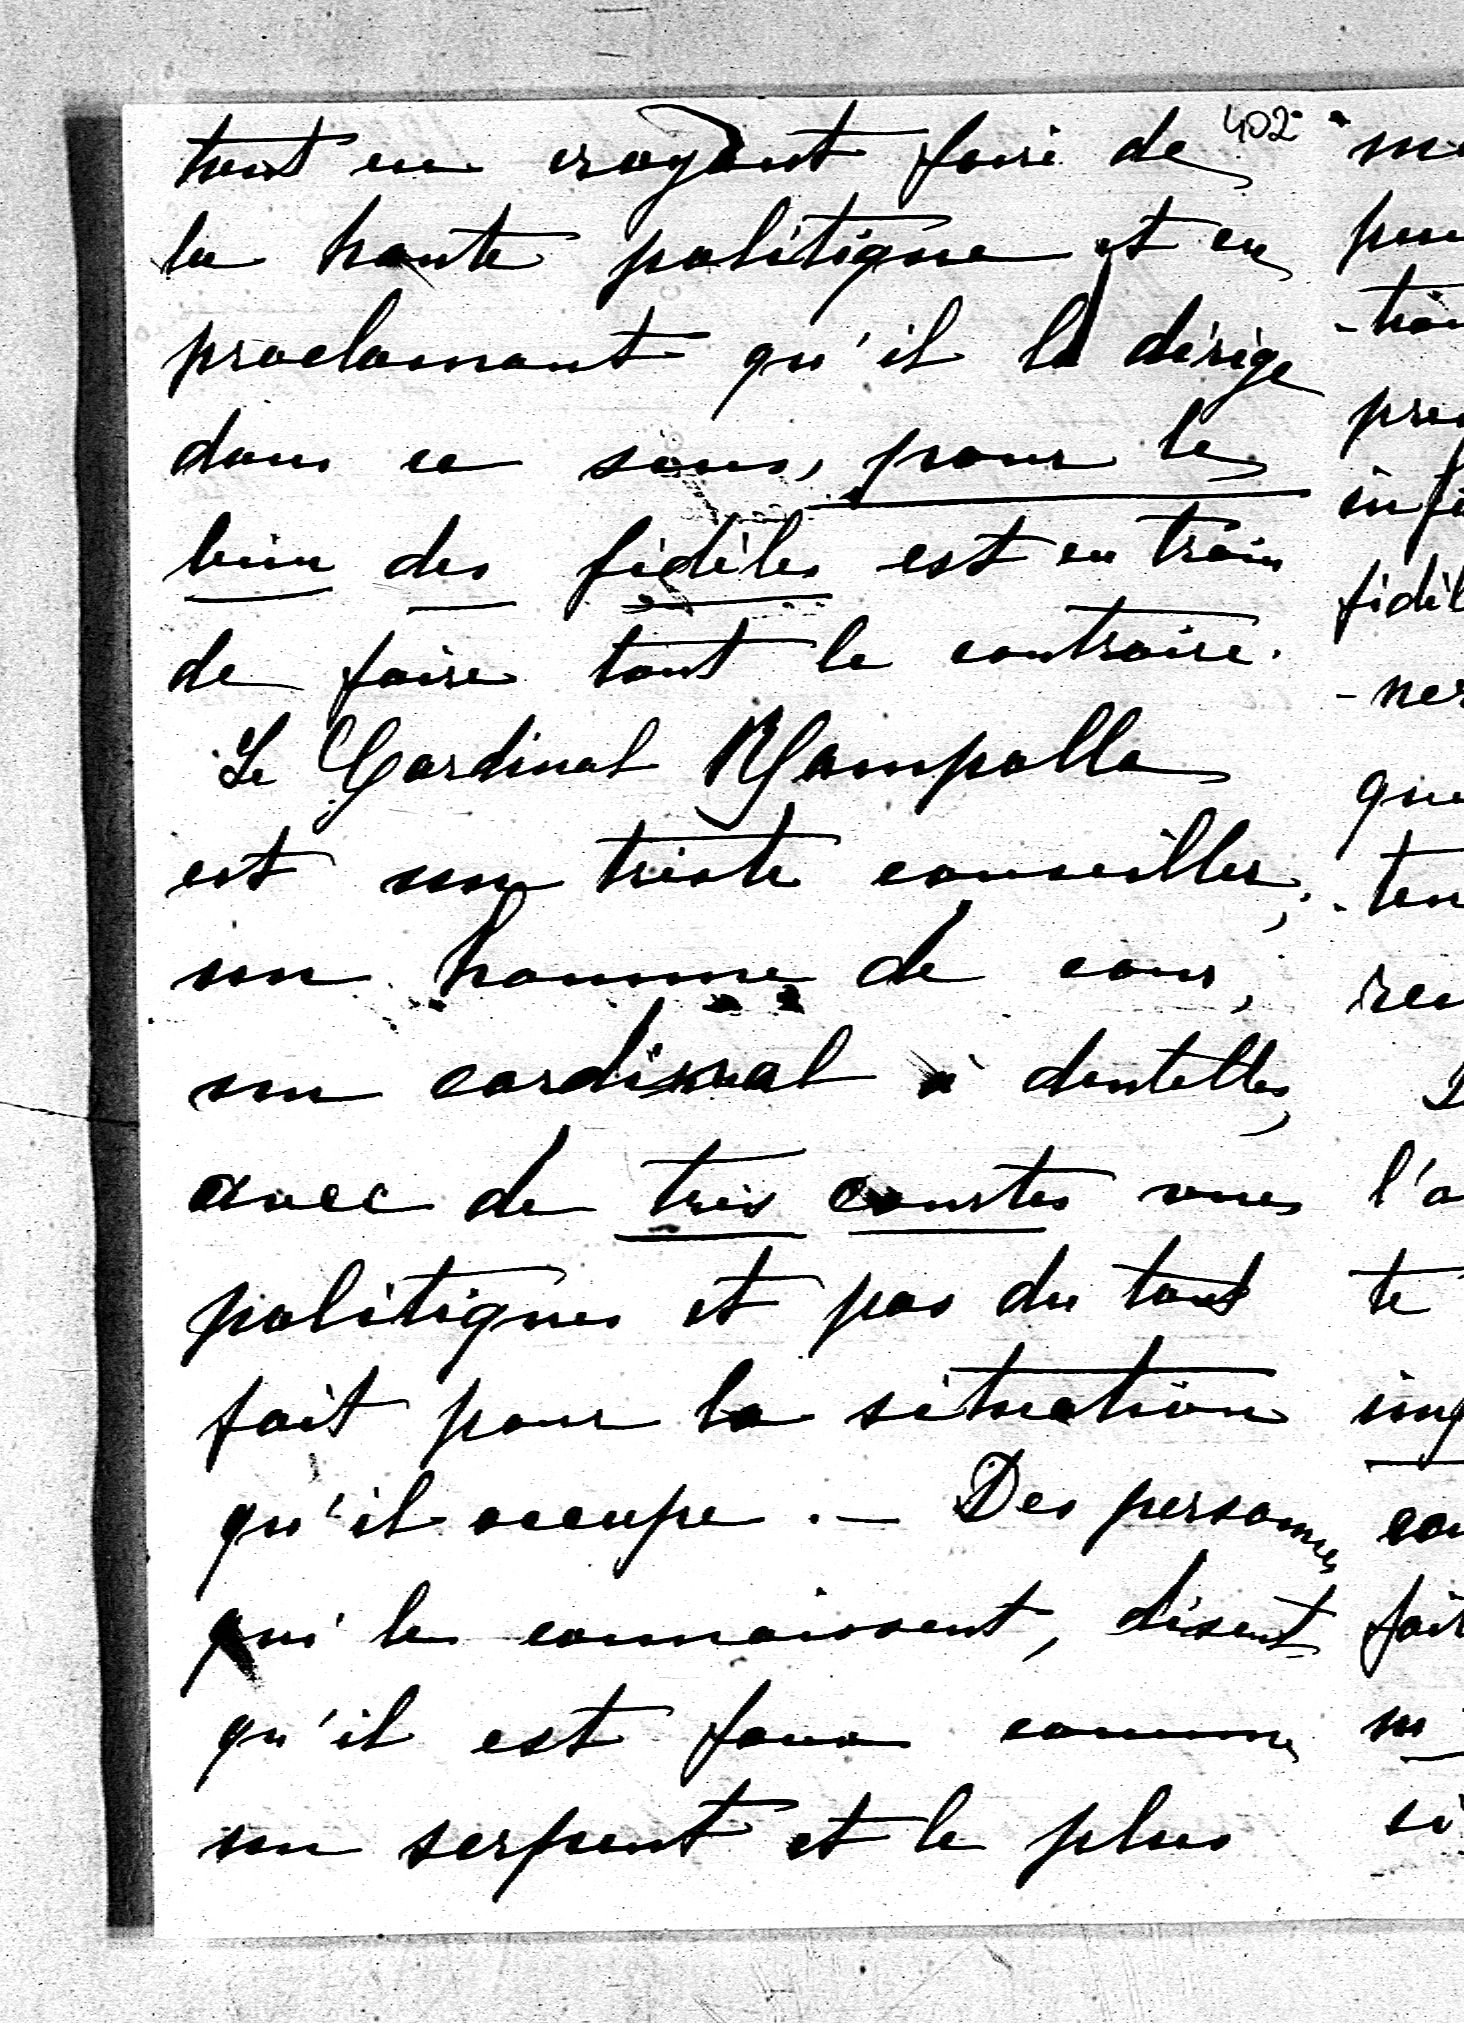 402
tout en croyant faire de
la haute politique et en
proclamant qu'il la dirige
dans ce sens, pour le
bien des fidèles est en train
de faire tout le contraire.
Le Cardinal Rampolla
est un triste conseiller;
un homme de cour,
un cardinal à dentelles,
avec de très courtes vues
politiques et pas du tout
fait pour la situation
qu'il occupe. — Des personnes
qui le connaissent, disent
qu'il est faux comme
un serpent et le plus